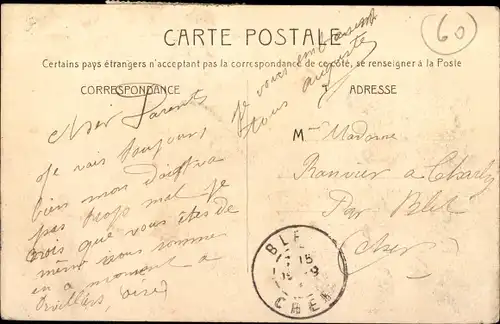 60
CARTE POSTALE
Certains pays étrangers n'acceptent pas la correspondance de ce côté, se renseigner à la Poste
CORRESPONDANCE
ADRESSE
Cher Parents
Je vais toujours
bien mon doigt va
pas trop mal je
crois que vous êtes de
même nous sommes
en a moment a
Orvillers, oise
Je vous embrasse
tous auguste
M Madame
Ranvier a Charly
Par Blet
(cher)
BLET
CHER